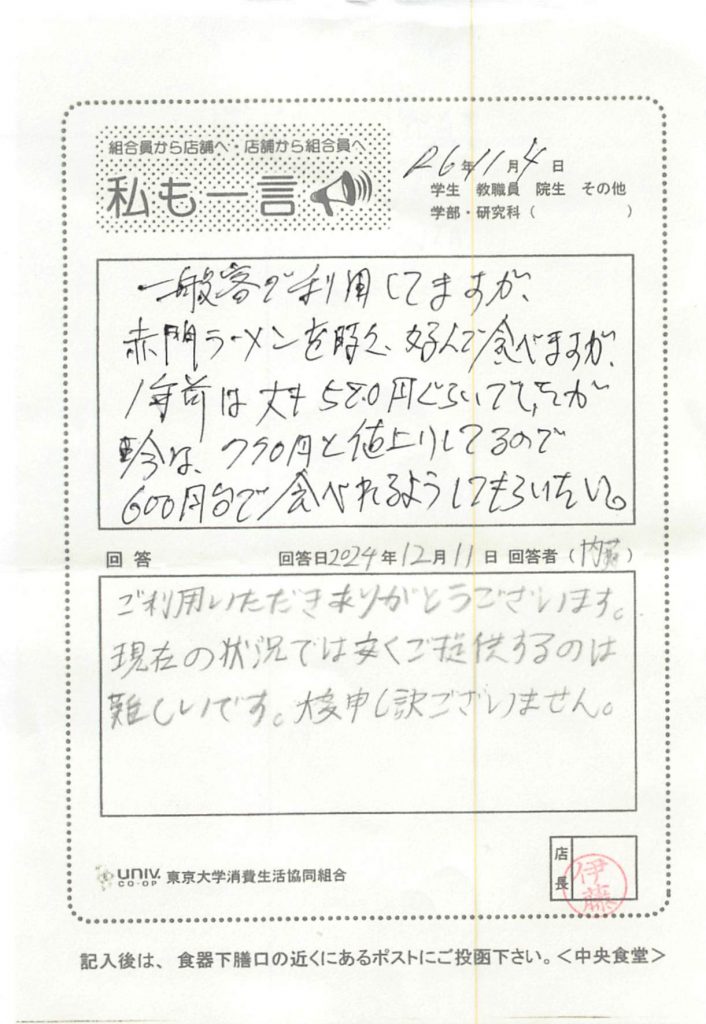 組合員から店舗へ・店舗から組合員へ
私も一言
R6年11月4日
学生 教職員 院生 その他
学部・研究科( )
一般客で利用してますが、
赤門ラーメンを時々、好んで食べますが、
1年前は大体580円ぐらいでしたが
今は、770円と値上りしてるので
600円台で食べれるようしてもらいたい。
回答 回答日2024年12月11日 回答者(内藤)
ご利用いただきありがとうございます。
現在の状況では安くご提供するのは
難しいです。大変申し訳ございません。
店長
伊藤
UNIV. CO-OP 東京大学消費生活協同組合
記入後は、食器下膳口の近くにあるポストにご投函下さい。<中央食堂>